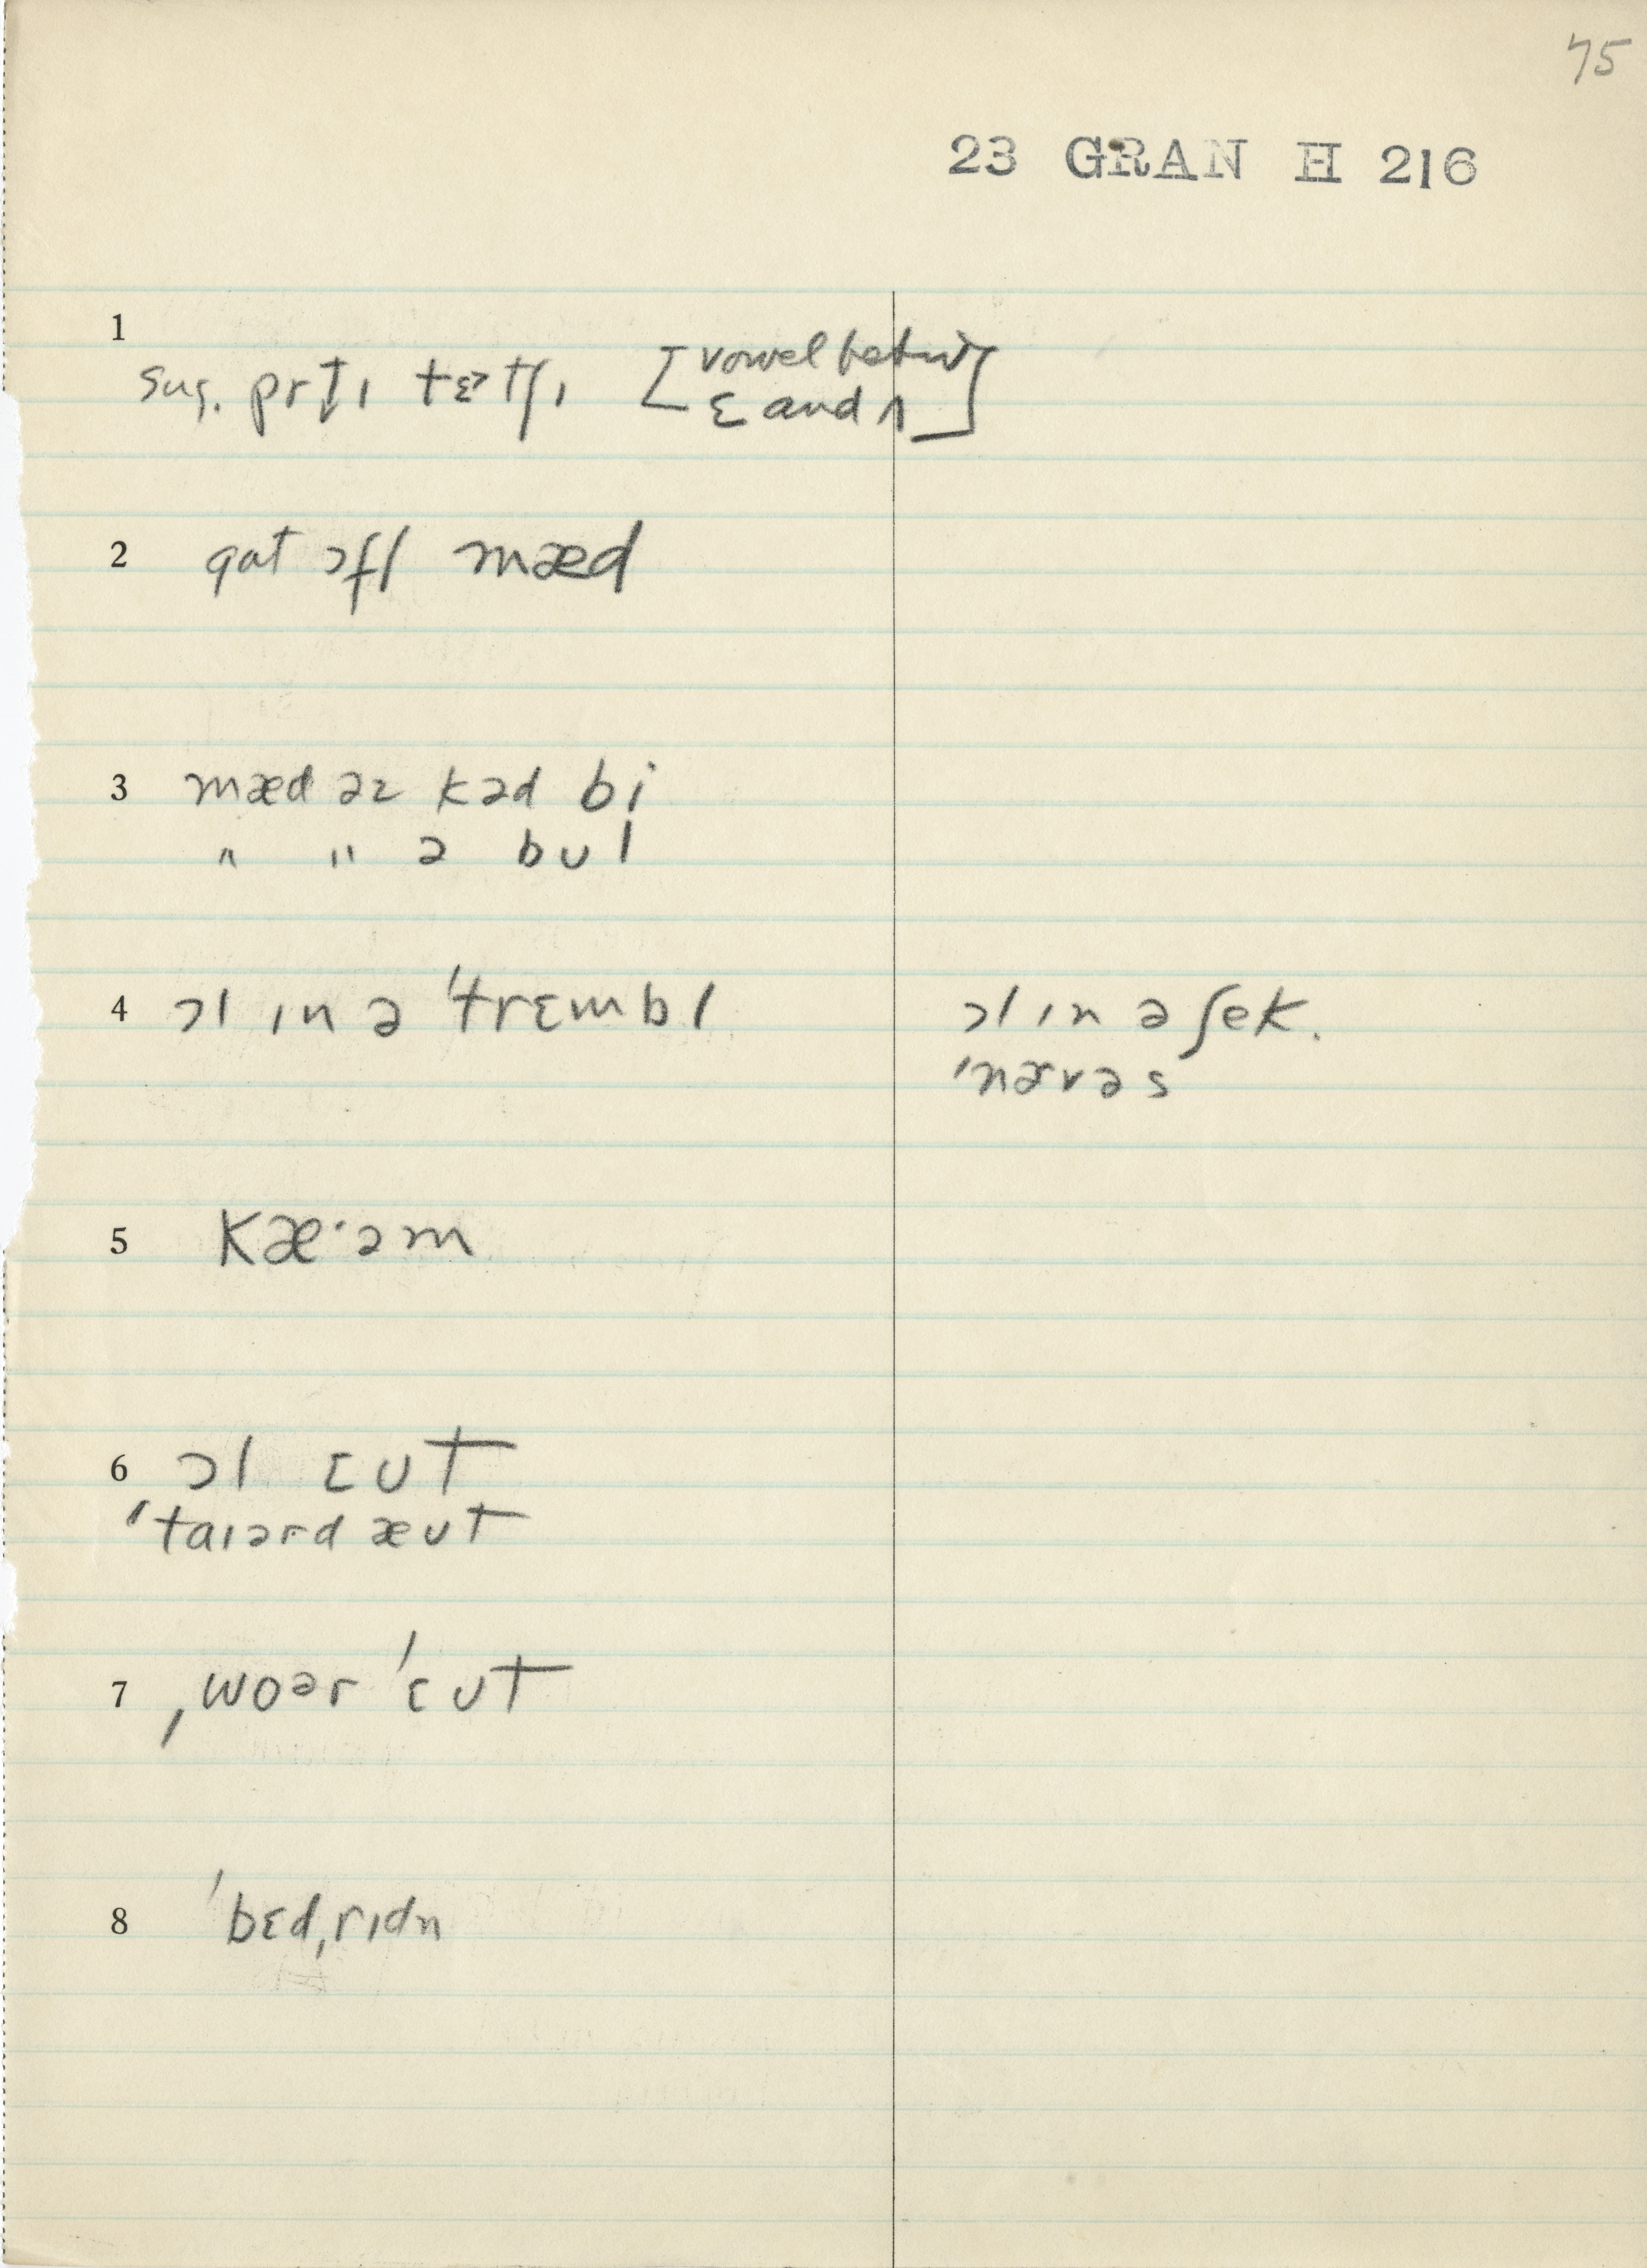 75
23 GRAN H 216
1
sug. prt̬ɪ tɛ>tʃɪ [vowel betw
ɛ and ʌ]
2 gat ɔfl mæd
3 mæd əz kəd bi
" " ə bʊl
4 ɔl ɪn ə ˈtrɛmbl ɔl ɪn ə ʃek.
ˈnɚvəs
5 kæ·əm
6 ɔl ɛʊt
ˈtaɪərd æʊt
7 ˌwoər ˈɛʊt
8 ˈbɛdˌrɪdn